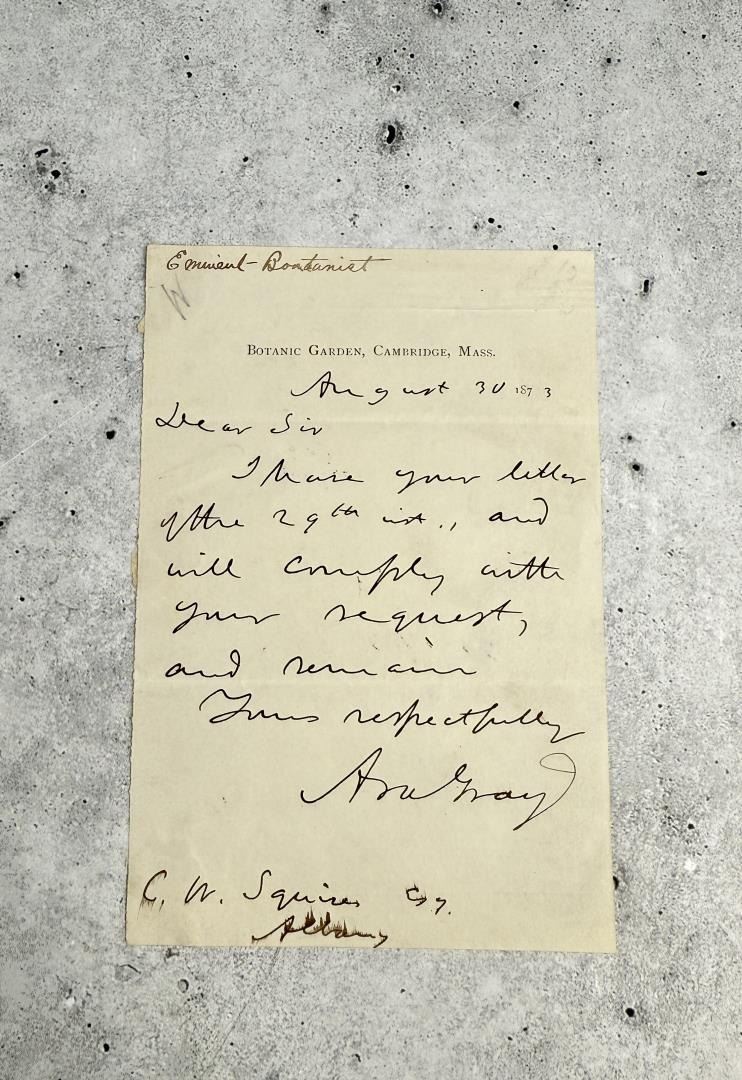 Eminent Boatanist
BOTANIC GARDEN, CAMBRIDGE, MASS.
August 30 1873
Dear Sir
I have your letter
of the 29th ist., and
will comply with
your request,
and remain
Yours respectfully
Asa Gray
C. W. Squires Esq.
Albany